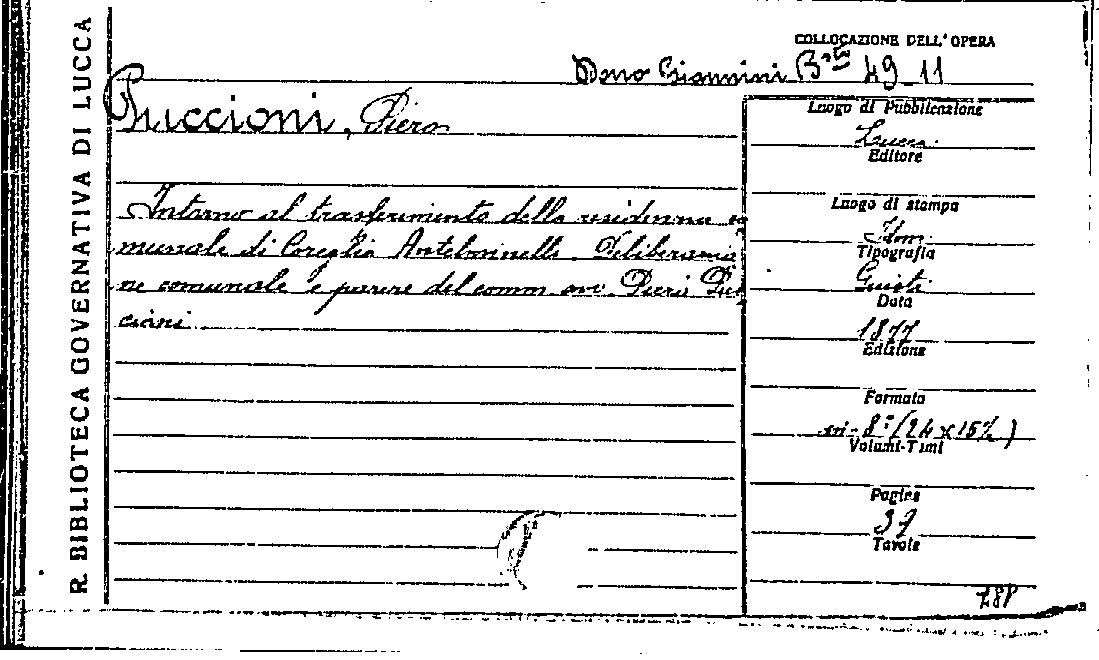 R. BIBLIOTECA GOVERNATIVA DI LUCCA
COLLOCAZIONE DELL'OPERA
Dono Giannini B.ta 49 11
Puccioni, Piero
Intorno al trasferimento della residenza co
munale di Coreglia Antelminelli. Deliberazio
ne comunale e parere del comm. avv. Piero Puc
cioni
Luogo di Pubblicazione
Lucca
Editore
Luogo di stampa
Idem
Tipografia
Giusti
Data
1877
Edizione
Formato
in-8° (24 x 15½)
Volumi-Tomi
Pagine
37
Tavole